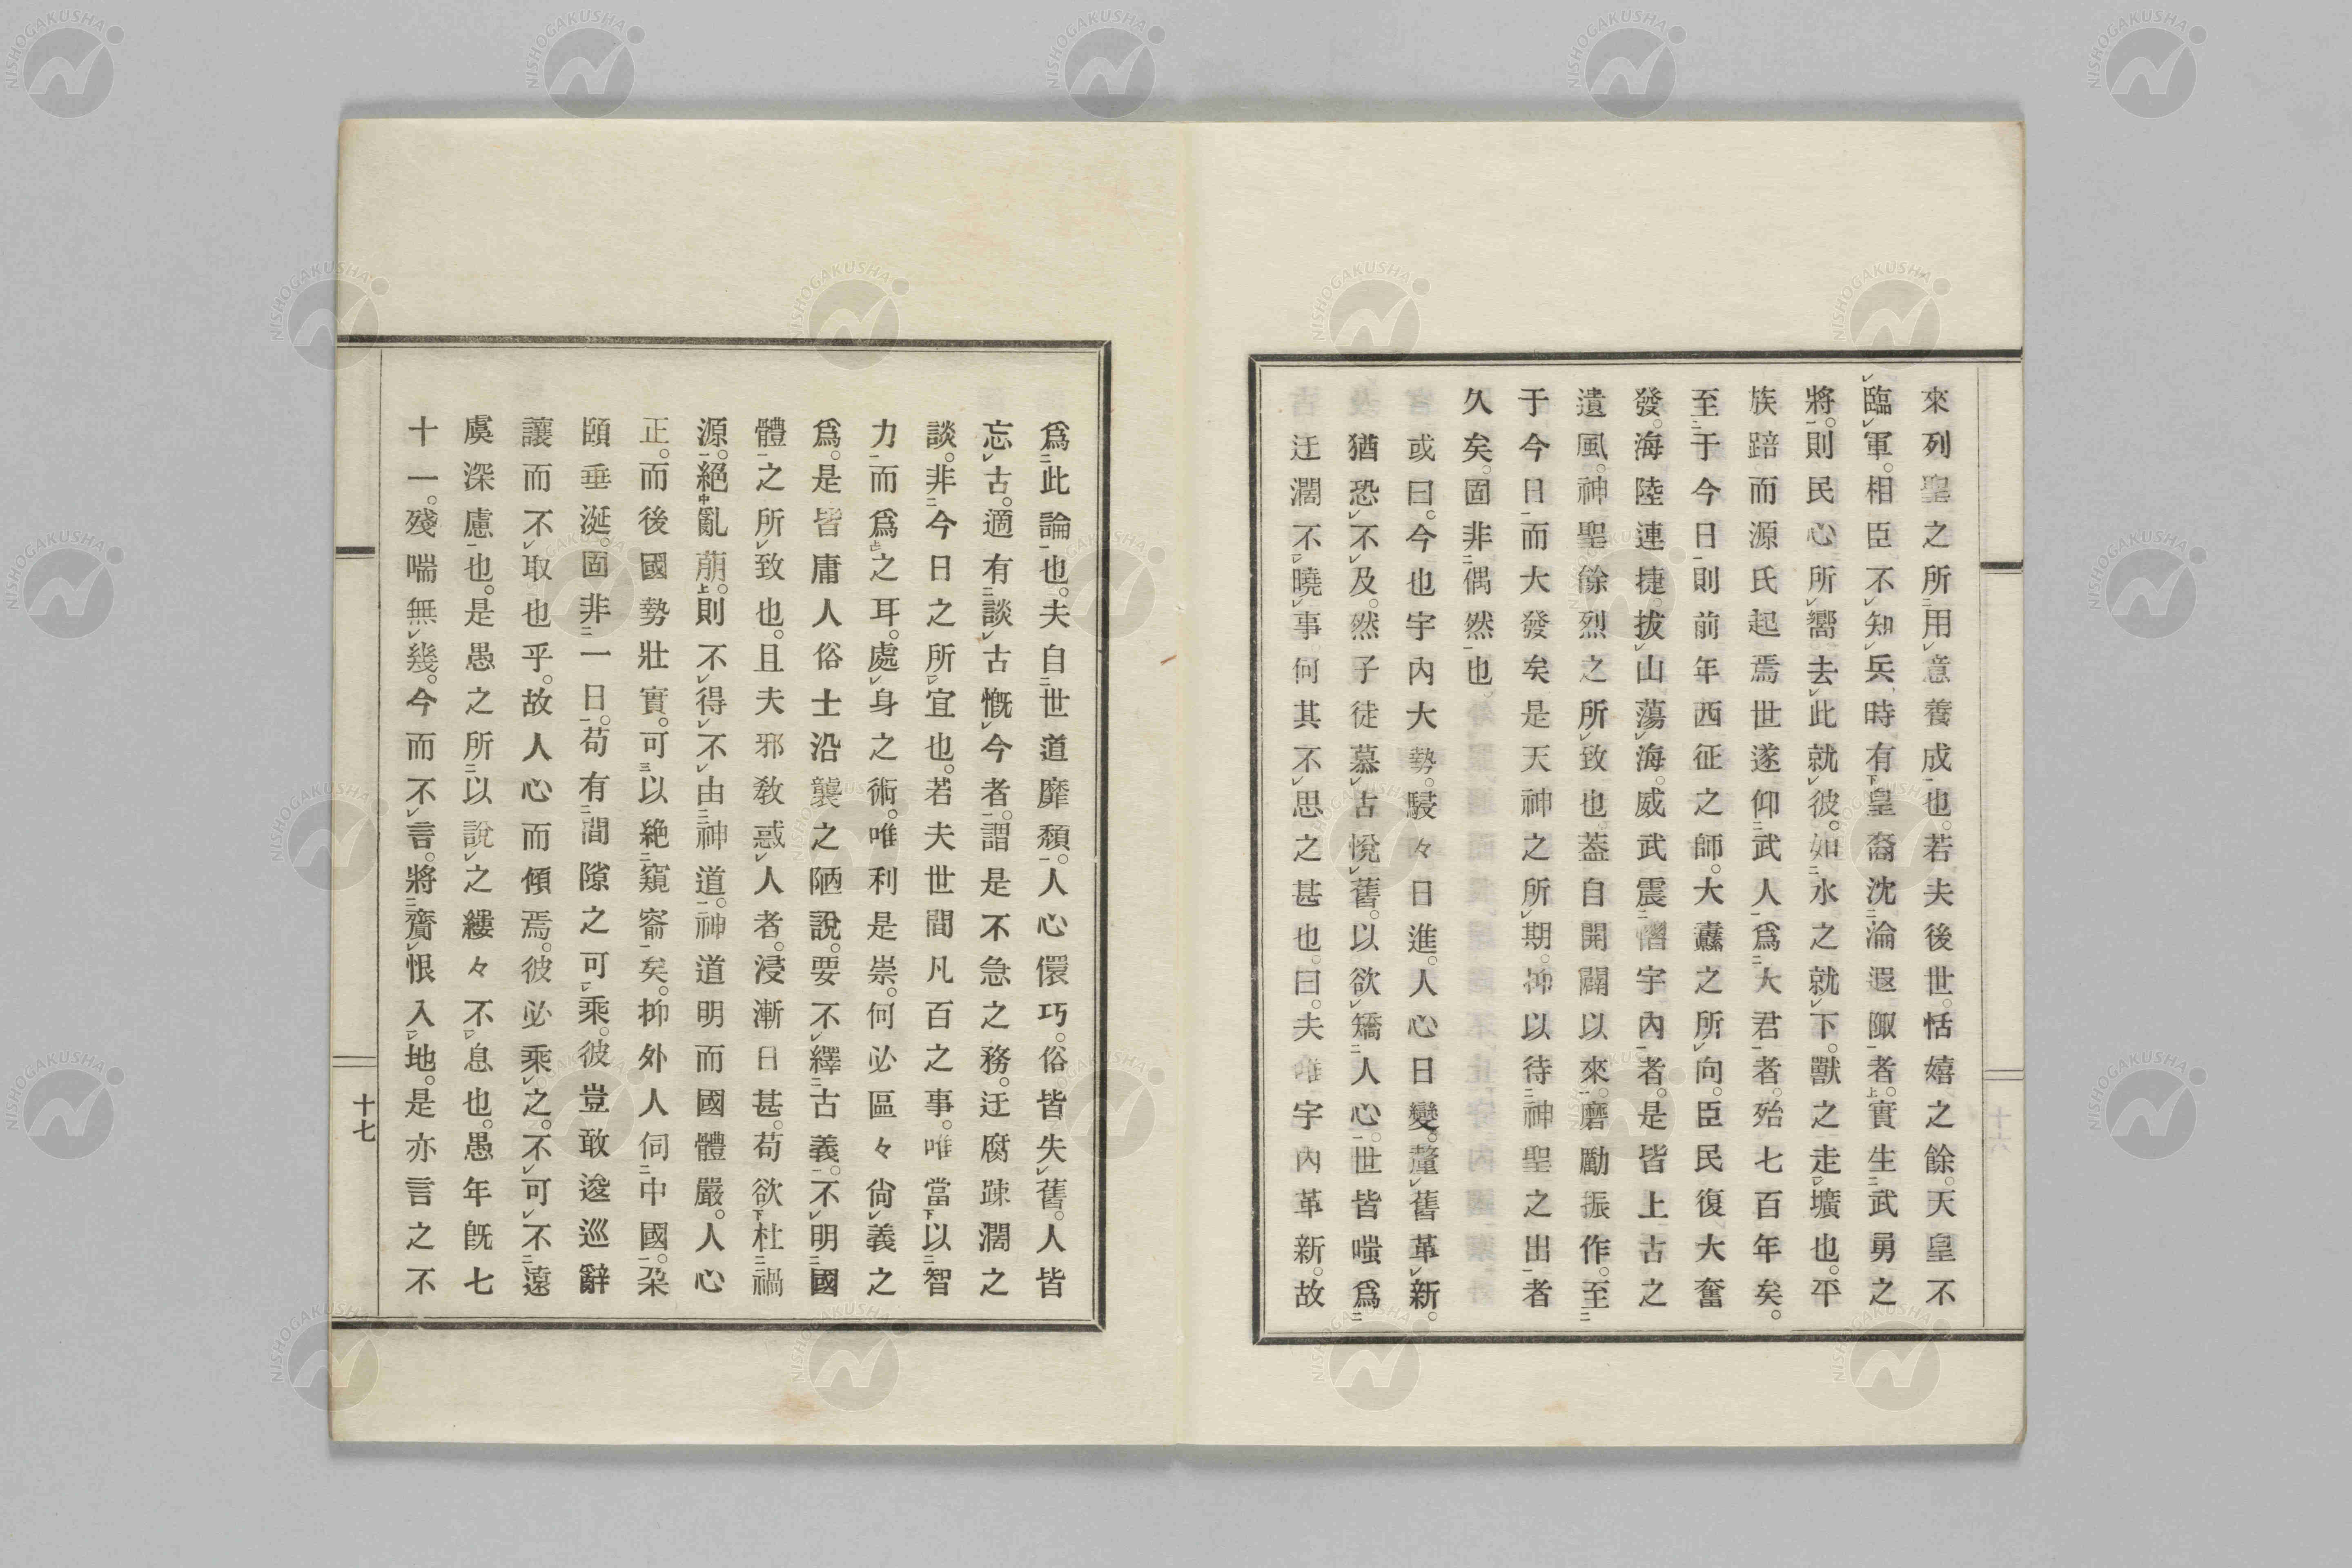 來列聖之所用意養成也。若夫後世。恬嬉之餘。天皇不
臨軍。相臣不知兵、時有皇裔沈淪遐陬者。實生武勇之
將。則民心所嚮去此就彼。如水之就下。獸之走壙也。平
族踣而源氏起焉世遂仰武人爲大君者。殆七百年矣。
至于今日則前年西征之師。大纛之所向。臣民復大奮
發。海陸連捷。拔山蕩海。威武震慴宇內者。是皆上古之
遺風。神聖餘烈之所致也。蓋自開闢以來。磨勵振作。至
于今日而大發矣是天神之所期。抑以待神聖之出者
久矣。固非偶然也。
或曰。今也宇內大勢。駸々日進。人心日變。釐舊革新。
猶恐不及。然子徒慕古悅舊。以欲矯人心。世皆嗤爲
迂濶不曉事何其不思之甚也。曰。夫唯宇內革新。故
爲此論也。夫自世道靡頽。人心儇巧。俗皆失舊。人皆
忘古。適有談古慨今者。謂是不急之務。迂腐疎濶之
談。非今日之所宜也。若夫世間凡百之事。唯當以智
力而爲之耳。處身之術。唯利是崇。何必區々尙義之
爲。是皆庸人俗士沿襲之陋說。要不繹古義。不明國
體之所致也。且夫邪敎惑人者。浸漸日甚。苟欲杜禍
源。絕亂萠。則不得不由神道。神道明而國體嚴。人心
正。而後國勢壯實。可以絕窺窬矣。抑外人伺中國。朶
頤垂涎。固非一日。苟有間隙之可乘。彼豈敢逡巡辭
讓而不取也乎。故人心而傾焉。彼必乘之。不可不遠
虞深慮也。是愚之所以說之縷々不息也。愚年旣七
十一。殘喘無幾。今而不言。將齎恨入地。是亦言之不
十七
十六
NISHOGAKUSHA